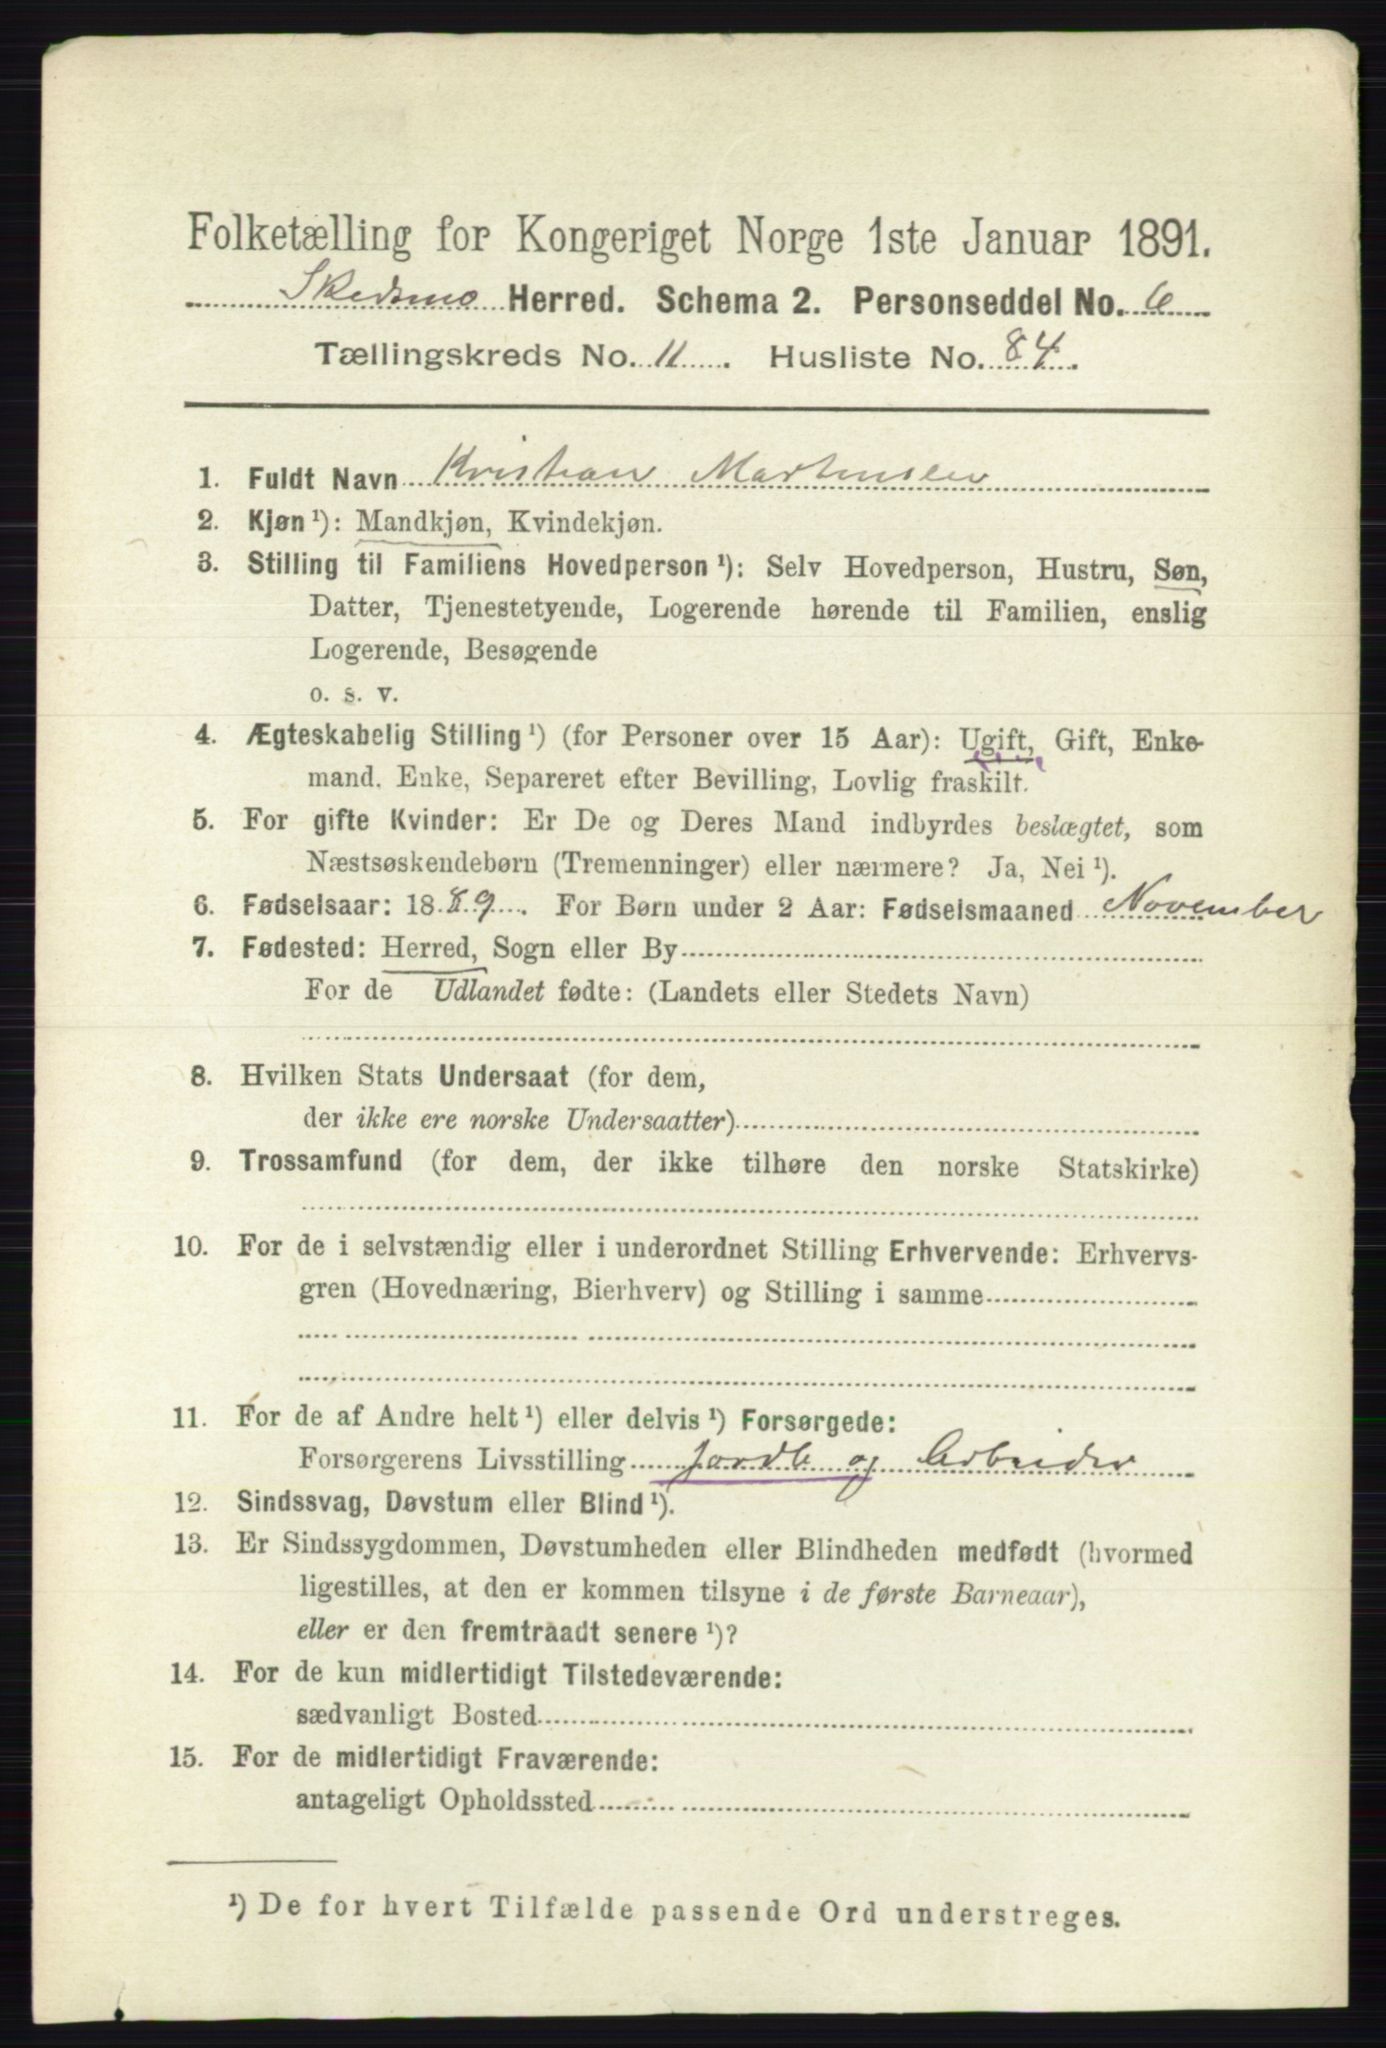 Folketælling for Kongeriget Norge 1ste Januar 1891.
Skedsmo Herred. Schema 2. Personseddel No. 6
Tællingskreds No. 11. Husliste No. 84.
1. Fuldt Navn Kristian Martinsen
2. Kjøn ¹): Mandkjøn, Kvindekjøn.
3. Stilling til Familiens Hovedperson ¹): Selv Hovedperson, Hustru, Søn,
Datter, Tjenestetyende, Logerende hørende til Familien, enslig
Logerende, Besøgende
o. s. v.
4. Ægteskabelig Stilling ¹) (for Personer over 15 Aar): Ugift, Gift, Enke-
mand, Enke, Separeret efter Bevilling, Lovlig fraskilt.
5. For gifte Kvinder: Er De og Deres Mand indbyrdes beslægtet, som
Næstsøskendebørn (Tremenninger) eller nærmere? Ja, Nei ¹).
6. Fødselsaar: 1889. For Børn under 2 Aar: Fødselsmaaned November
7. Fødested: Herred, Sogn eller By
For de Udlandet fødte: (Landets eller Stedets Navn)
8. Hvilken Stats Undersaat (for dem,
der ikke ere norske Undersaatter)
9. Trossamfund (for dem, der ikke tilhøre den norske Statskirke)
10. For de i selvstændig eller i underordnet Stilling Erhvervende: Erhvervs-
gren (Hovednæring, Bierhverv) og Stilling i samme
11. For de af Andre helt ¹) eller delvis ¹) Forsørgede:
Forsørgerens Livsstilling Jordb og Arbeider
12. Sindssvag, Døvstum eller Blind ¹).
13. Er Sindssygdommen, Døvstumheden eller Blindheden medfødt (hvormed
ligestilles, at den er kommen tilsyne i de første Barneaar),
eller er den fremtraadt senere ¹)?
14. For de kun midlertidigt Tilstedeværende:
sædvanligt Bosted
15. For de midlertidigt Fraværende:
antageligt Opholdssted
¹) De for hvert Tilfælde passende Ord understreges.